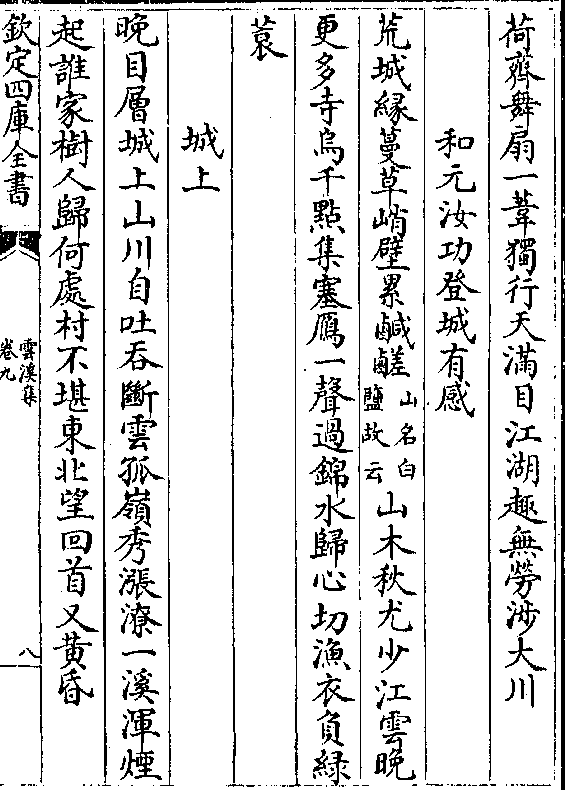 荷齊舞扇一葦獨行天滿目江湖趣無勞涉大川
和元汝功登城有感
荒城緣蔓草峭壁累鹹鹺山名白鹽故云山木秋尤少江雲晚
更多寺烏千點集塞鴈一聲過錦水歸心切漁衣負緑
蓑
城上
晚目層城上山川自吐吞斷雲孤嶺秀漲潦一溪渾煙
起誰家樹人歸何處村不堪東北望回首又黄昏
欽定四庫全書
雲溪集
卷九
八